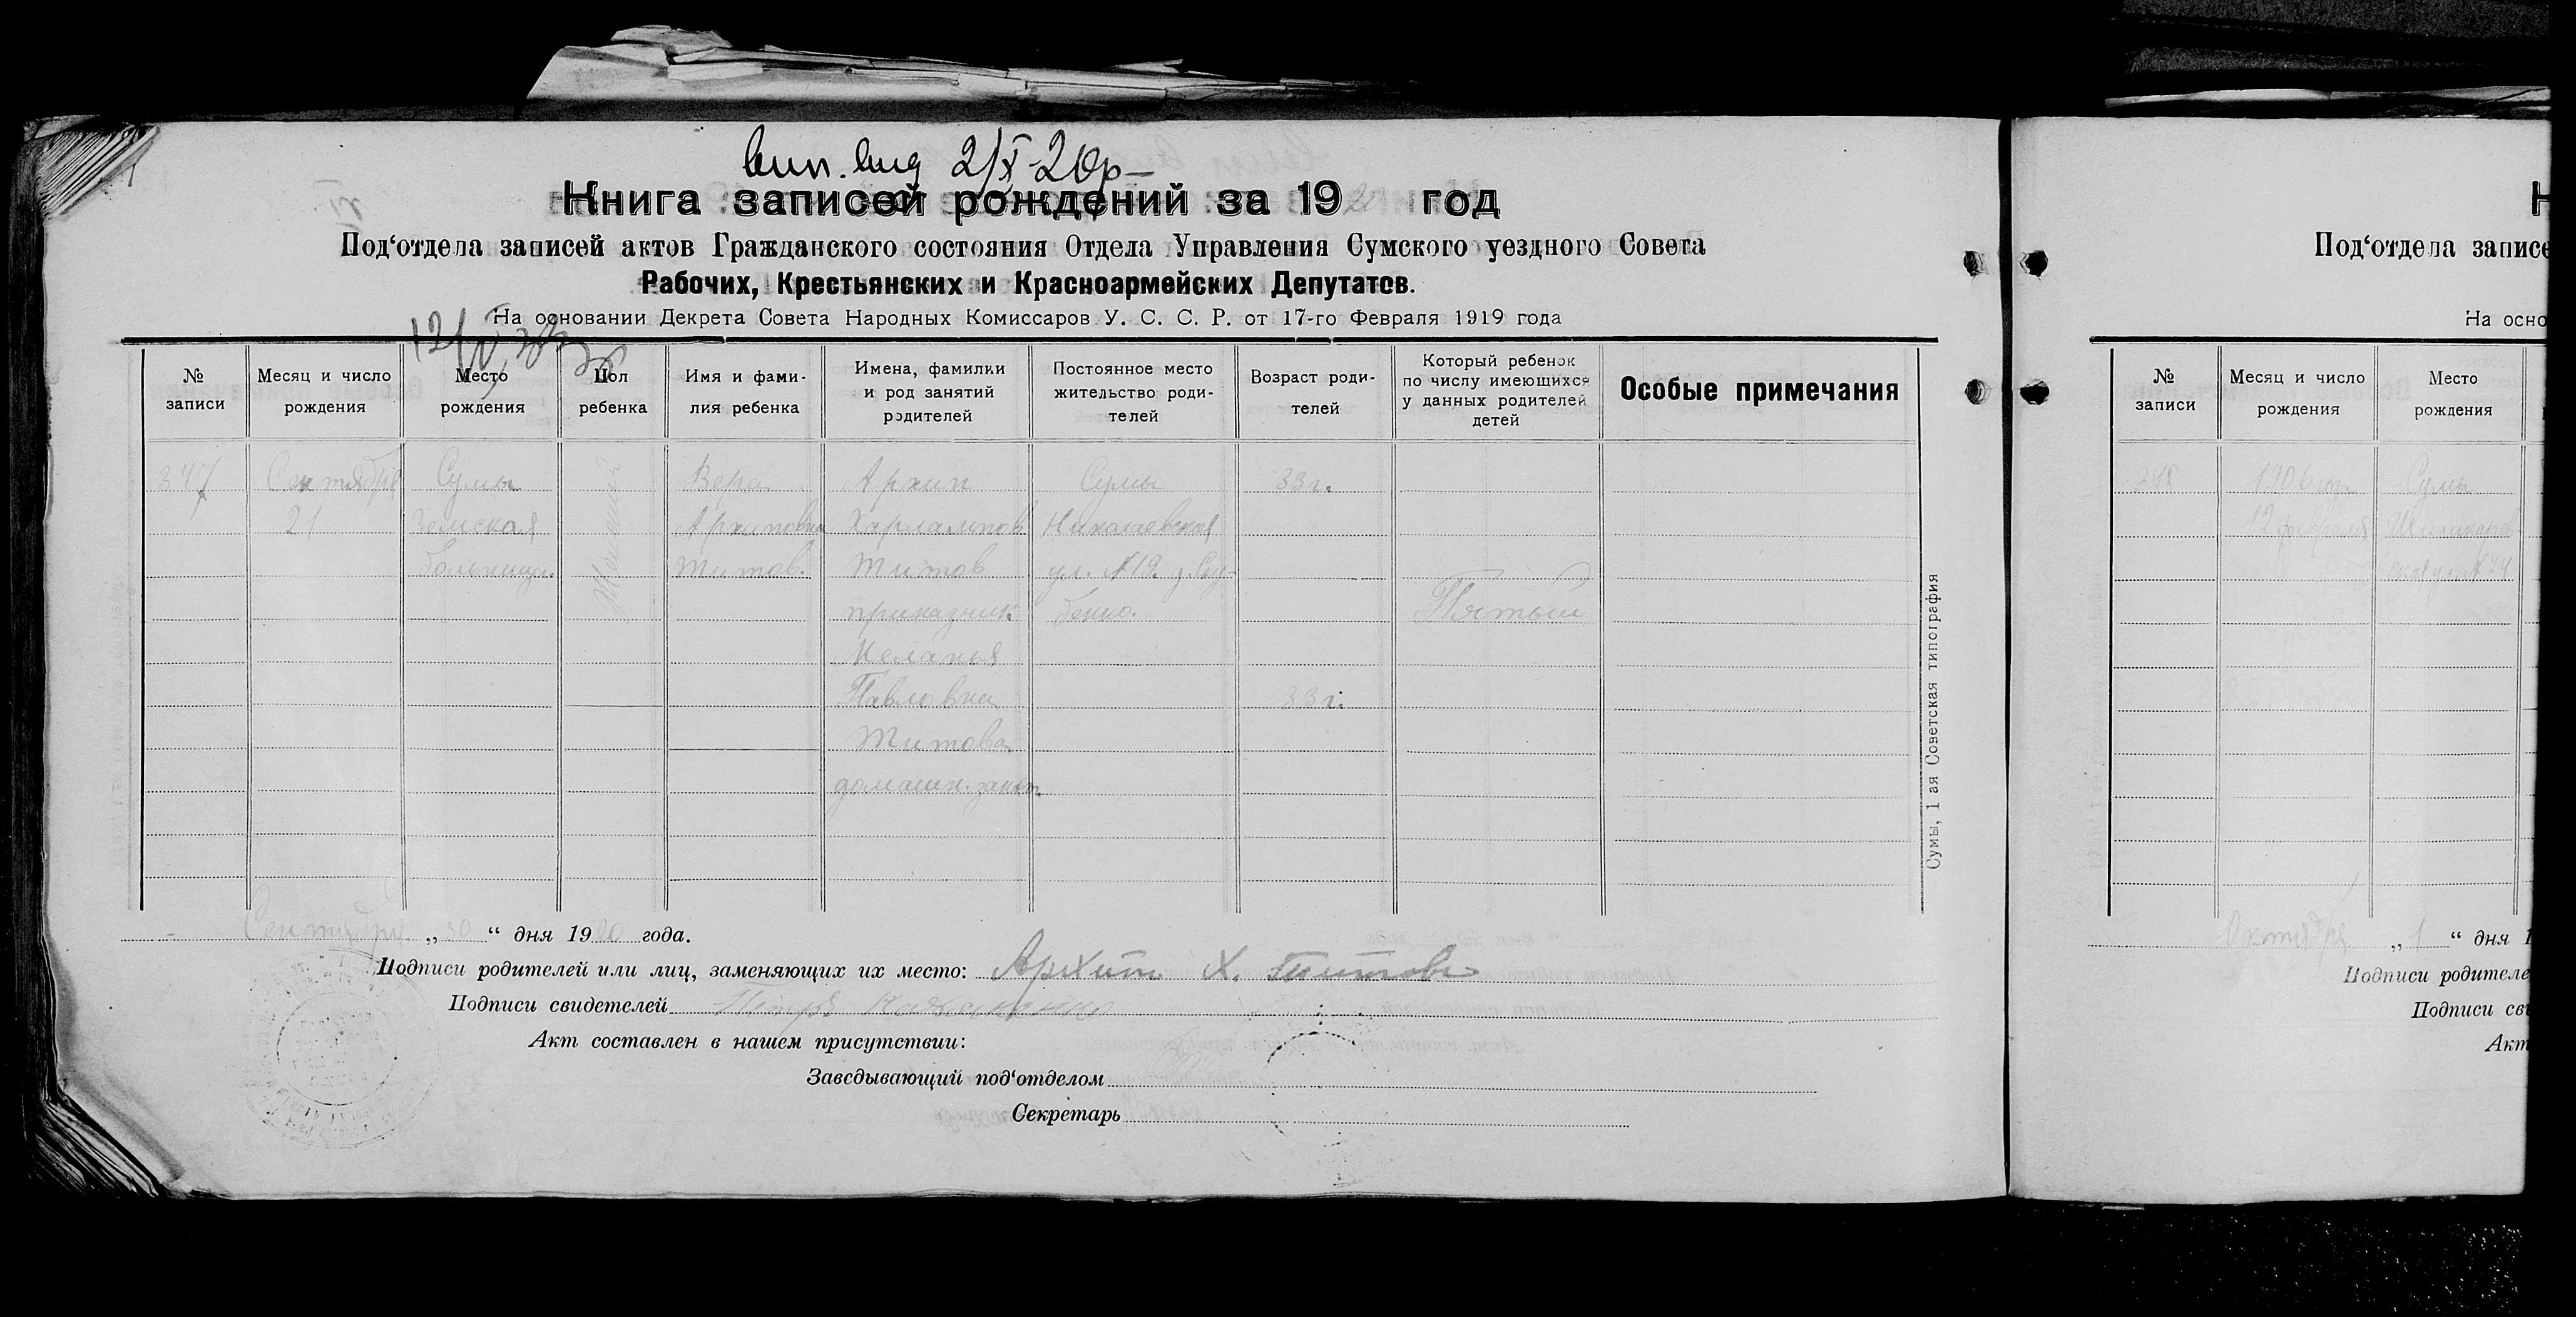 2/X-20р
Книга записей рождений за 1920 год
Под‘отдела записей актов Гражданского состояния Отдела Управления Сумского уездного Совета
Рабочих, Крестьянских и Красноармейских Депутатов.
На основании Декрета Совета Народных Комиссаров У. С. С. Р. от 17-го Февраля 1919 года
№ записи
Месяц и число рождения
Место рождения
Пол ребенка
Имя и фами-
лия ребенка
Имена, фамилии
и род занятий
родителей
Постоянное место
жительство роди-
телей
Возраст роди-
телей
Который ребенок
по числу имеющихся
у данных родителей
детей
Особые примечания
347
Сентября
21
Сумы
Земская
больница.
Женский
Вера
Архиповна
Титов.
Архип
Харлампов
Титов
приказчик
Меланья
Павловна
Титова
домашн. занят.
Сумы
Николаевская
ул. №19.
33 г.
33 г.
Пятый
Сумы, 1 ая Советская типография
Сентября „30“ дня 1920 года.
Подписи родителей или лиц, заменяющих их место: Архип Х. Титов
Подписи свидетелей Петр
Акт составлен в нашем присутствии:
Заведывающий под‘отделом
Секретарь
Н
Под‘отдела записе
На осно
№ записи
Месяц и число рождения
Место рождения
348
1906
12 февраля
Сумы
Октября „1“ дня 1
Подписи родителе
Подписи сви
Акт